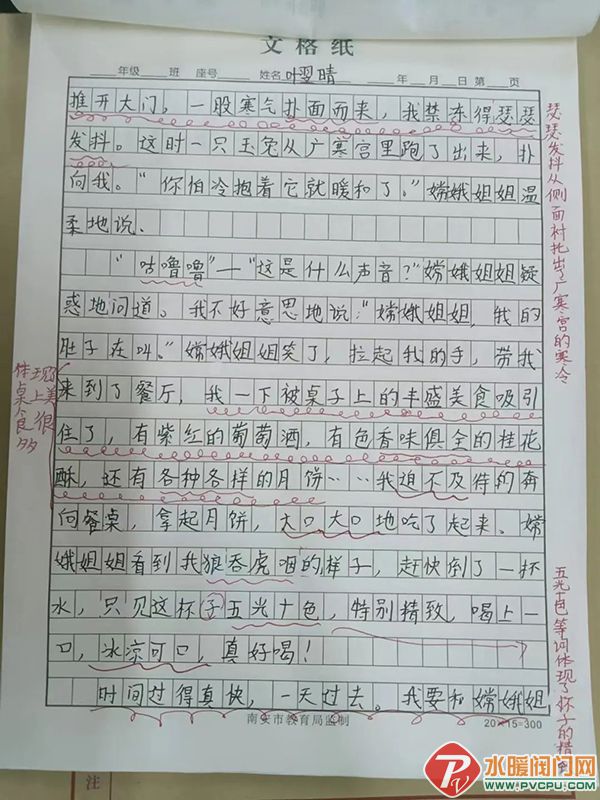 文格纸
年级 班 座号 姓名叶翌晴 年 月 日 第 页
推开大门，一股寒气扑面而来，我禁冻得瑟瑟
发抖。这时一只玉兔从广寒宫里跑了出来，扑
向我。“你怕冷抱着它就暖和了。”嫦娥姐姐温
柔地说.
“咕噜噜”—“这是什么声音?”嫦娥姐姐疑
惑地问道。我不好意思地说:“嫦娥姐姐，我的
肚子在叫。”嫦娥姐姐笑了，拉起我的手，带我
来到了餐厅，我一下被桌子上的丰盛美食吸引
住了，有紫红的葡萄酒，有色香味俱全的桂花
酥，还有各种各样的月饼……我迫不及待的奔
向餐桌，拿起月饼，大口大口地吃了起来。嫦
娥姐姐看到我狼吞虎咽的样子，赶快倒了一杯
水，只见这杯子五光十色，特别精致，喝上一
口，冰凉可口，真好喝！
时间过得真快，一天过去。我要和嫦娥姐
南安市教育局监制
20×15=300
瑟瑟发抖从侧面衬托出了广寒宫的寒冷
体现桌上美食很多
五光十色等词体现了杯子的精
注
水暖阀门网
WWW.PVCPU.COM